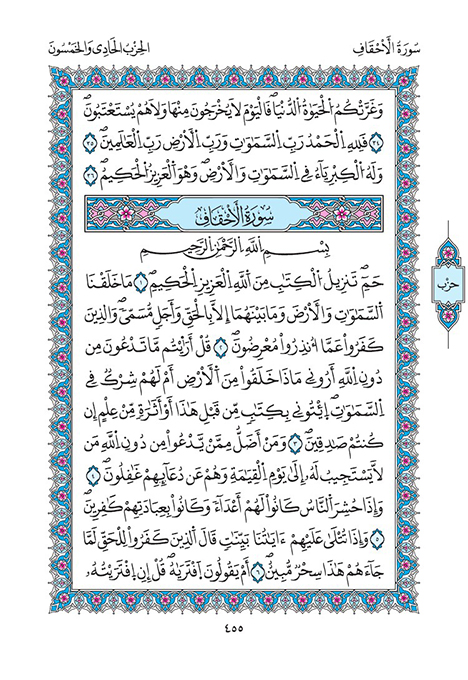 سُورَةُ الْأَحْقَافِ
الحِزْبُ الحَادِي وَالخَمْسُونَ
وَغَرَّتْكُمُ الْحَيَوٰةُ الدُّنْيَا فَالْيَوْمَ لَا يَخْرُجُونَ مِنْهَا وَلَا هُمْ يُسْتَعْتَبُونَ
٣٤ فَلِلهِ الْحَمْدُ رَبِّ السَّمَٰوَٰتِ وَرَبِّ الْأَرْضِ رَبِّ الْعَٰلَمِينَ ٣٥
وَلَهُ الْكِبْرِيَآءُ فِي السَّمَٰوَٰتِ وَالْأَرْضِ وَهُوَ الْعَزِيزُ الْحَكِيمُ ٣٦
سُورَةُ الْأَحْقَافِ
بِسْمِ اللَّهِ الرَّحْمَٰنِ الرَّحِيمِ
حمٓ تَنزِيلُ الْكِتَٰبِ مِنَ اللَّهِ الْعَزِيزِ الْحَكِيمِ ١ مَا خَلَقْنَا
السَّمَٰوَٰتِ وَالْأَرْضَ وَمَا بَيْنَهُمَا إِلَّا بِالْحَقِّ وَأَجَلٍ مُّسَمًّى وَالَّذِينَ
كَفَرُوا عَمَّا أُنذِرُوا مُعْرِضُونَ ٢ قُلْ أَرَٰيْتُم مَّا تَدْعُونَ مِن
دُونِ اللَّهِ أَرُونِي مَاذَا خَلَقُوا مِنَ الْأَرْضِ أَمْ لَهُمْ شِرْكٌ فِي
السَّمَٰوَٰتِ اِئْتُونِي بِكِتَٰبٍ مِّن قَبْلِ هَٰذَا أَوْ أَثَٰرَةٍ مِّنْ عِلْمٍ إِن
كُنتُمْ صَٰدِقِينَ ٣ وَمَنْ أَضَلُّ مِمَّن يَدْعُوا مِن دُونِ اللَّهِ مَن
لَّا يَسْتَجِيبُ لَهُ إِلَىٰ يَوْمِ الْقِيَٰمَةِ وَهُمْ عَن دُعَآئِهِمْ غَٰفِلُونَ ٤
وَإِذَا حُشِرَ النَّاسُ كَانُوا لَهُمْ أَعْدَآءً وَكَانُوا بِعِبَادَتِهِمْ كَٰفِرِينَ
٥ وَإِذَا تُتْلَىٰ عَلَيْهِمْ ءَايَٰتُنَا بَيِّنَٰتٍ قَالَ الَّذِينَ كَفَرُوا لِلْحَقِّ لَمَّا
جَآءَهُمْ هَٰذَا سِحْرٌ مُّبِينٌ ٦ أَمْ يَقُولُونَ اَفْتَرَىٰهُ قُلْ إِنِ اِفْتَرَيْتُهُ
حزب
٤٥٥